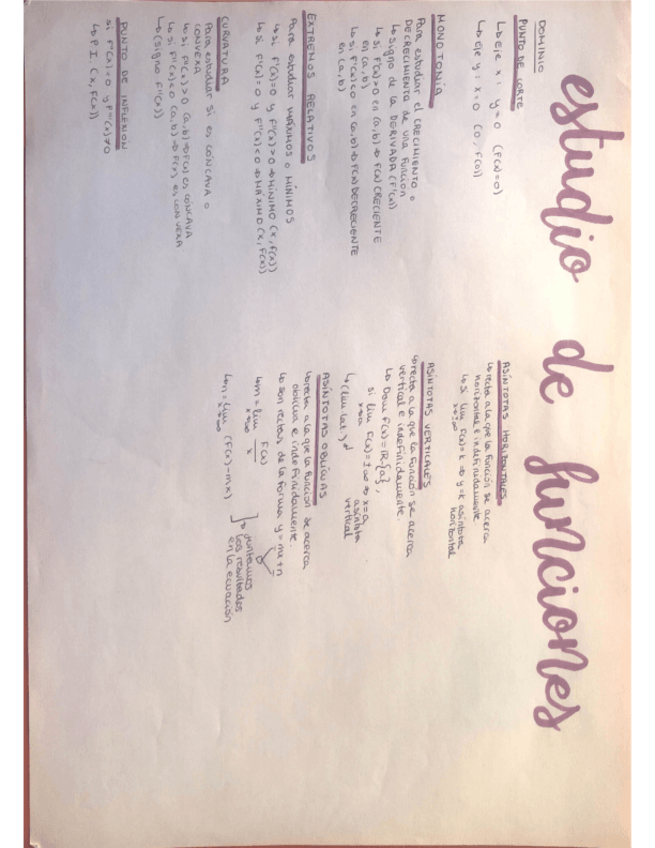 estudio de funciones
DOMINIO
PUNTO DE CORTE
↳ eje x : y=0 (F(x)=0)
↳ eje y : x=0 (0, F(0))
MONOTONIA
Para estudiar el CRECIMIENTO o
DECRECIMIENTO de una función
↳ signo de la DERIVADA (F'(x))
↳ si F'(x)>0 en (a,b) ⇒ F(x) CRECIENTE
en (a,b)
↳ si F'(x)<0 en (a,b) ⇒ F(x) DECRECIENTE
en (a,b)
EXTREMOS RELATIVOS
Para estudiar MÁXIMOS o MÍNIMOS
↳ si F'(x)=0 y F''(x)>0 → MÍNIMO (x, F(x))
↳ si F'(x)=0 y F''(x)<0 → MÁXIMO (x, F(x))
CURVATURA
Para estudiar si es CÓNCAVA o
CONVEXA
↳ si F''(x)>0 (a,b) ⇒ F(x) es CONCAVA
↳ si F''(x)<0 (a,b) ⇒ F(x) es CONVEXA
↳ (signo F''(x))
PUNTO DE INFLEXION
si F''(x)=0 y F'''(x)≠0
↳ P.I. (x, F(x))
ASÍNTOTAS HORIZONTALES
↳ recta a la que la función se acerca
horizontal e indefinidamente
↳ si lim F(x)=k ⇒ y=k asíntota
x→±∞ horizontal
ASÍNTOTAS VERTICALES
↳ recta a la que la función se acerca
vertical e indefinidamente.
↳ Dom F(x)=R{a},
si lim F(x)=±∞ ⇒ x=a
x→a asíntota
↳ (lim lat.) vertical
ASÍNTOTAS OBLÍCUAS
↳ recta a la que la función se acerca
oblicua e indefinidamente.
↳ son rectas de la forma y=mx+n
↳ m = lim F(x)/x
x→±∞
↳ n = lim (F(x)-mx)
x→±∞
juntamos
los resultados
en la ecuación